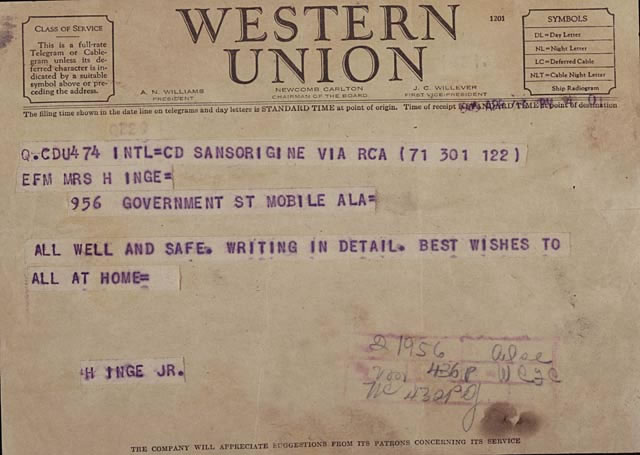 CLASS OF SERVICE
This is a full-rate
Telegram or Cable-
gram unless its de-
ferred character is in-
dicated by a suitable
symbol above or pre-
ceding the address.
WESTERN
UNION
1201
SYMBOLS
DL=Day Letter
NL=Night Letter
LC=Deferred Cable
NLT=Cable Night Letter
Ship Radiogram
A. N. WILLIAMS
PRESIDENT
NEWCOMB CARLTON
CHAIRMAN OF THE BOARD
J. C. WILLEVER
FIRST VICE-PRESIDENT
The filing time shown in the date line on telegrams and day letters is STANDARD TIME at point of origin. Time of receipt is STANDARD TIME at point of destination
Q.CDU474 INTL=CD SANSORIGINE VIA RCA (71 301 122)
EFM MRS H INGE=
956 GOVERNMENT ST MOBILE ALA=
ALL WELL AND SAFE. WRITING IN DETAIL. BEST WISHES TO
ALL AT HOME=
H INGE JR.
2 1956
436P
430P
THE COMPANY WILL APPRECIATE SUGGESTIONS FROM ITS PATRONS CONCERNING ITS SERVICE